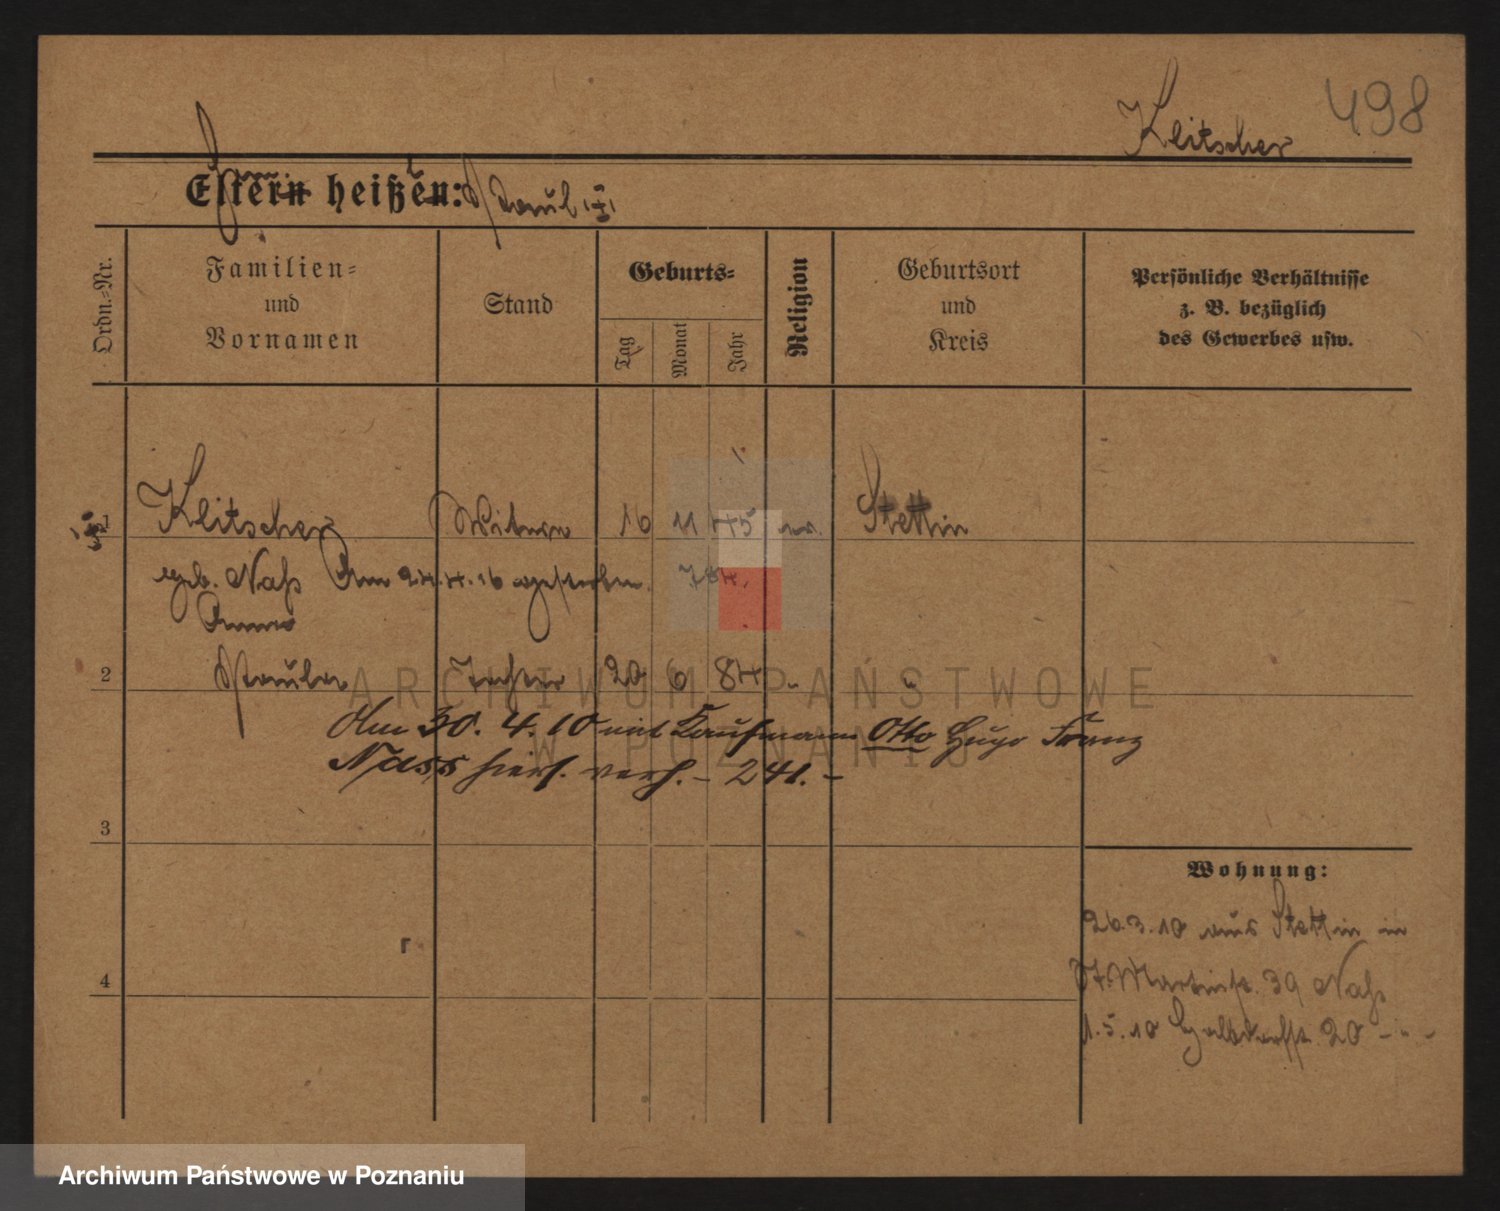 498
Klitscher
Eltern heißen:
Ordn.=Nr.
Familien=
und
Vornamen
Stand
Geburts=
Tag
Monat
Jahr
Religion
Geburtsort
und
Kreis
Persönliche Verhältnisse
z. B. bezüglich
des Gewerbes usw.
1 Klitscher Witwe 16 11 45 ev. Stettin
geb. Naß Am 24.4.16 gestorben. 784.
Anna
2 Tochter 20 6 84 " "
Am 30. 4. 10 mit Kaufmann Otto Hugo Franz
Nass hier verh. – 241. –
3
Wohnung:
26.3.10 aus Stettin in
St. Martinstr. 39 Naß
4
1.5.10 Halbdorfstr. 20 – " –
ARCHIWUM PAŃSTWOWE
W POZNANIU
Archiwum Państwowe w Poznaniu